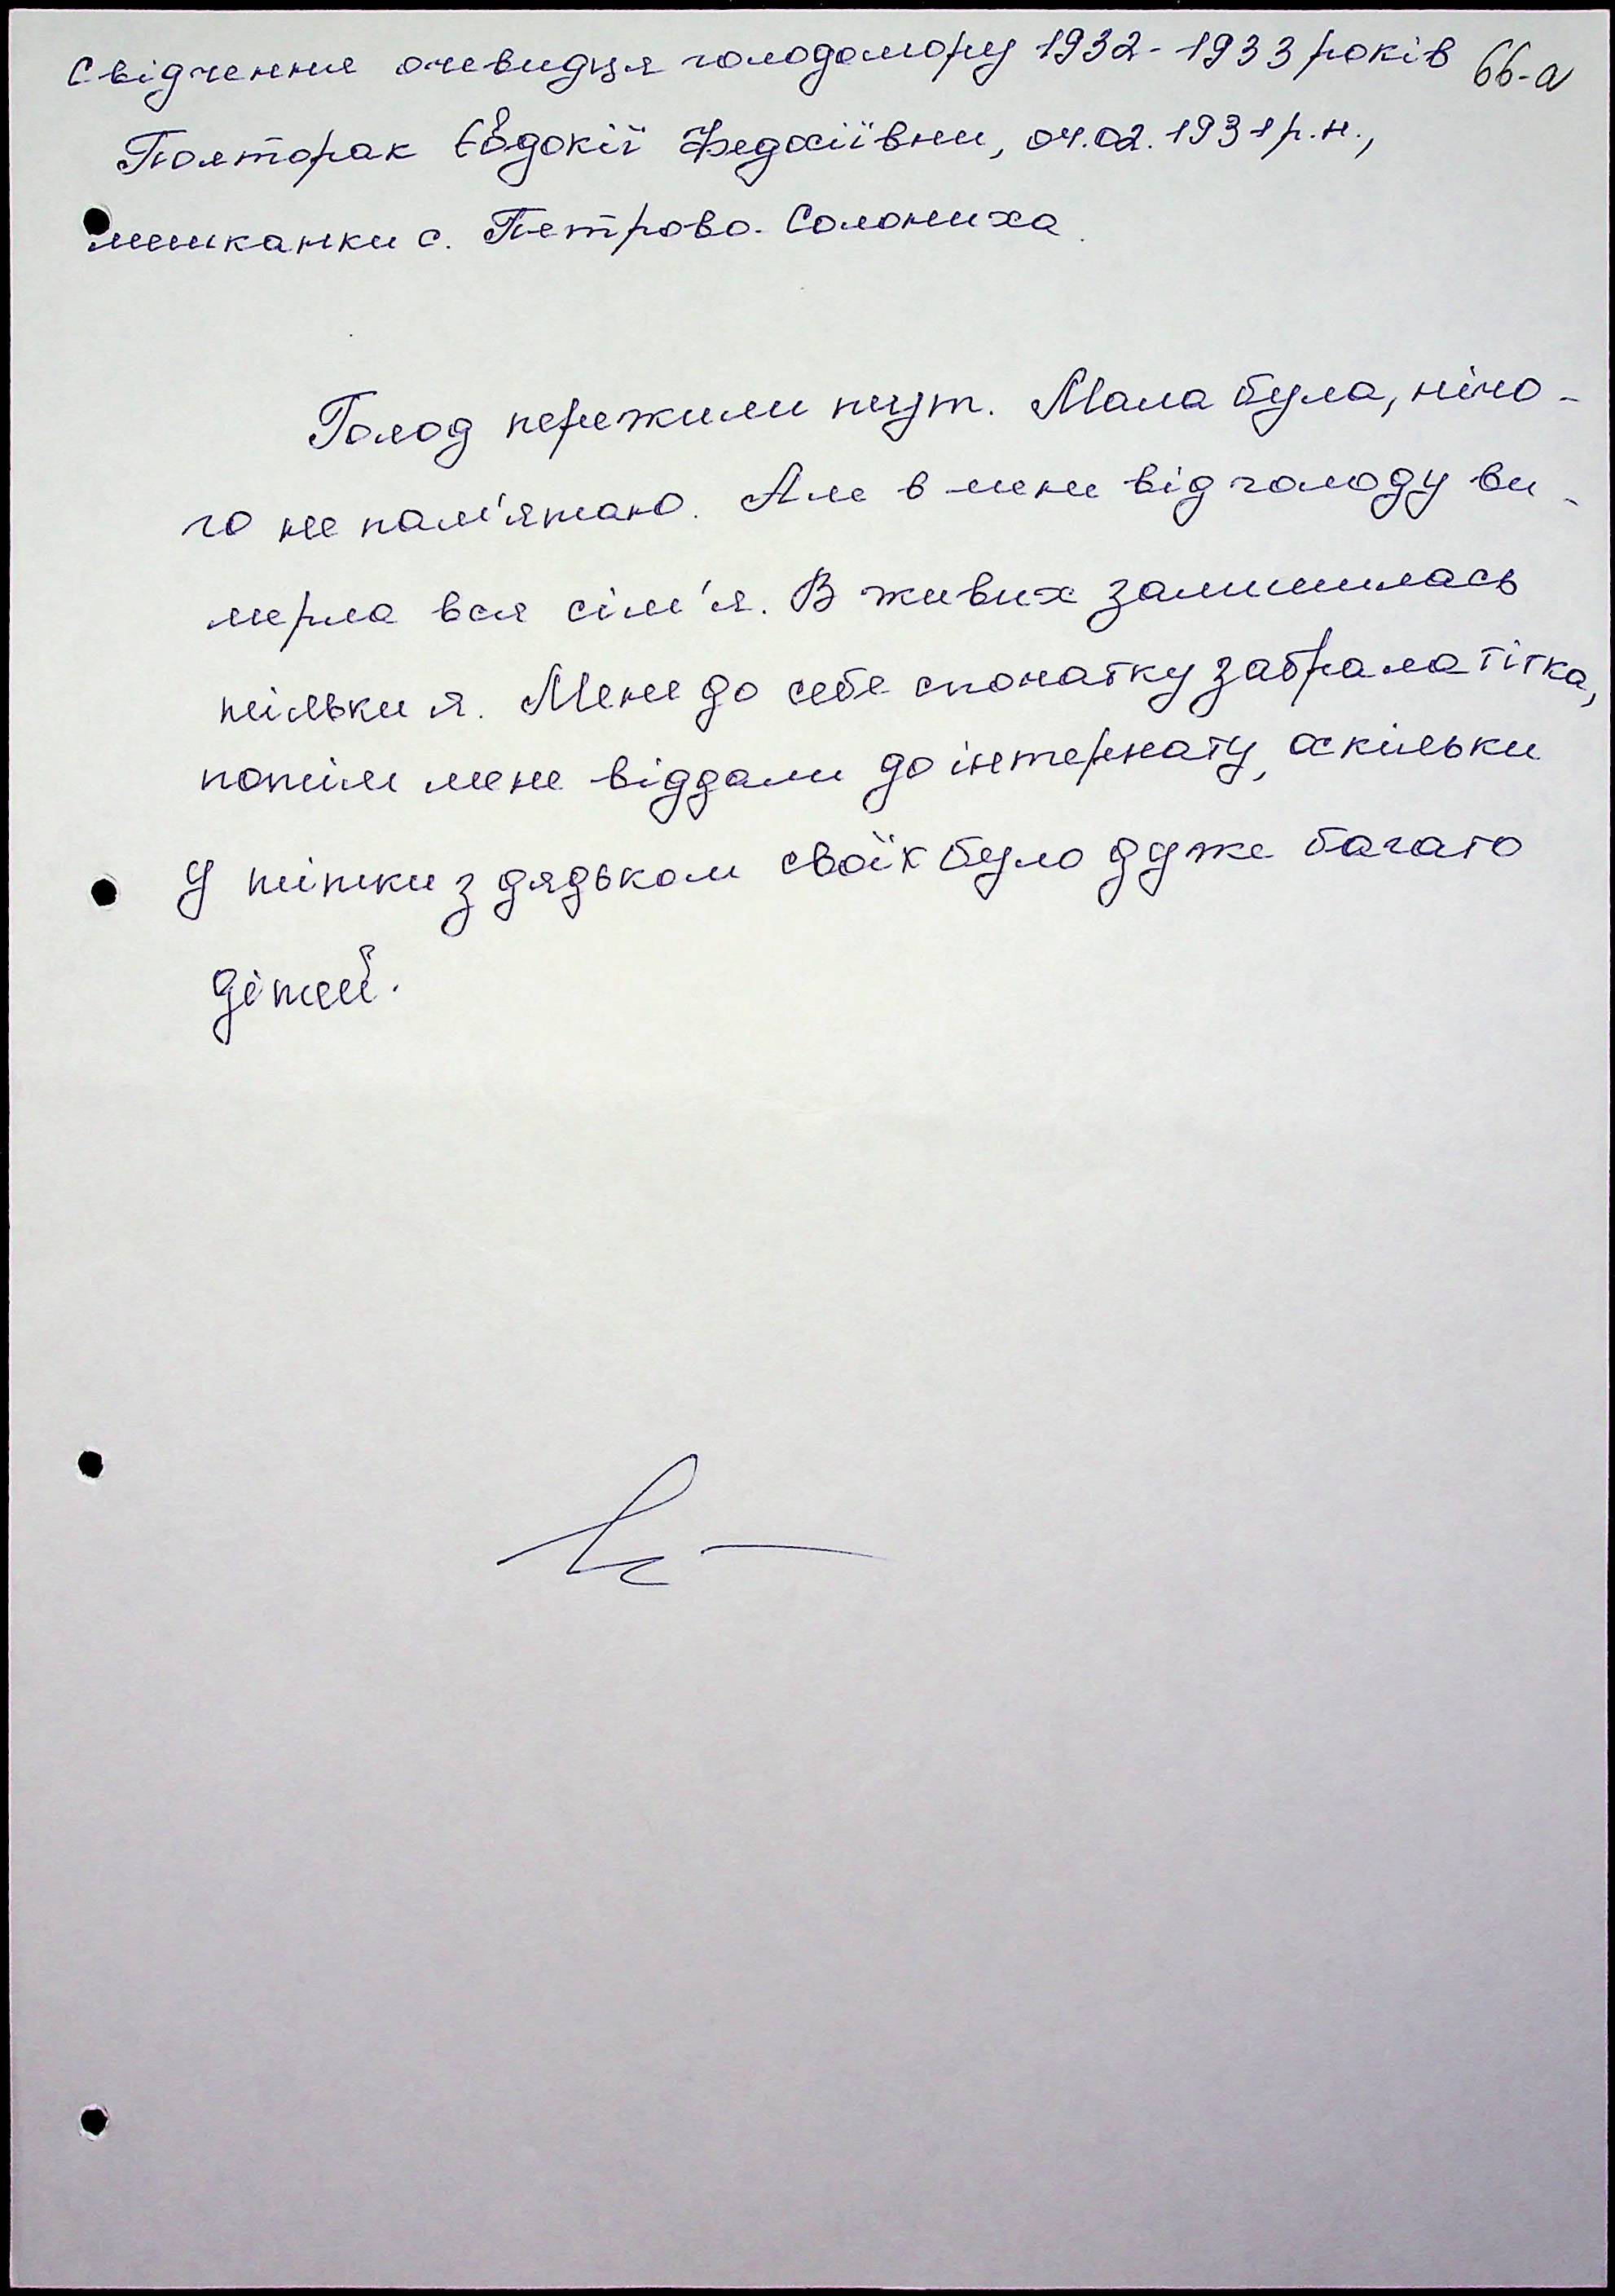 Свідчення очевидця голодомору 1932-1933 років 66-а
Полторак Євдокії Федосіївни, 04.02.1931 р.н.,
мешканки с. Петрово-Солониха
Голод пережили тут. Мала була, нічо-
го не пам'ятаю. Але в мене від голоду ви-
мерла вся сім'я. В живих залишилась
тільки я. Мене до себе спочатку забрала тітка,
потім мене віддали до інтернату, оскільки
у тітки з дядьком своїх було дуже багато
дітей.